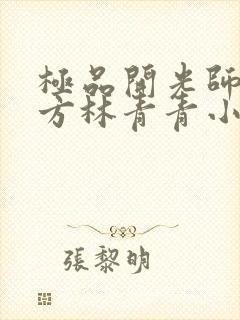 極品開光師
方林青青小
張黎明